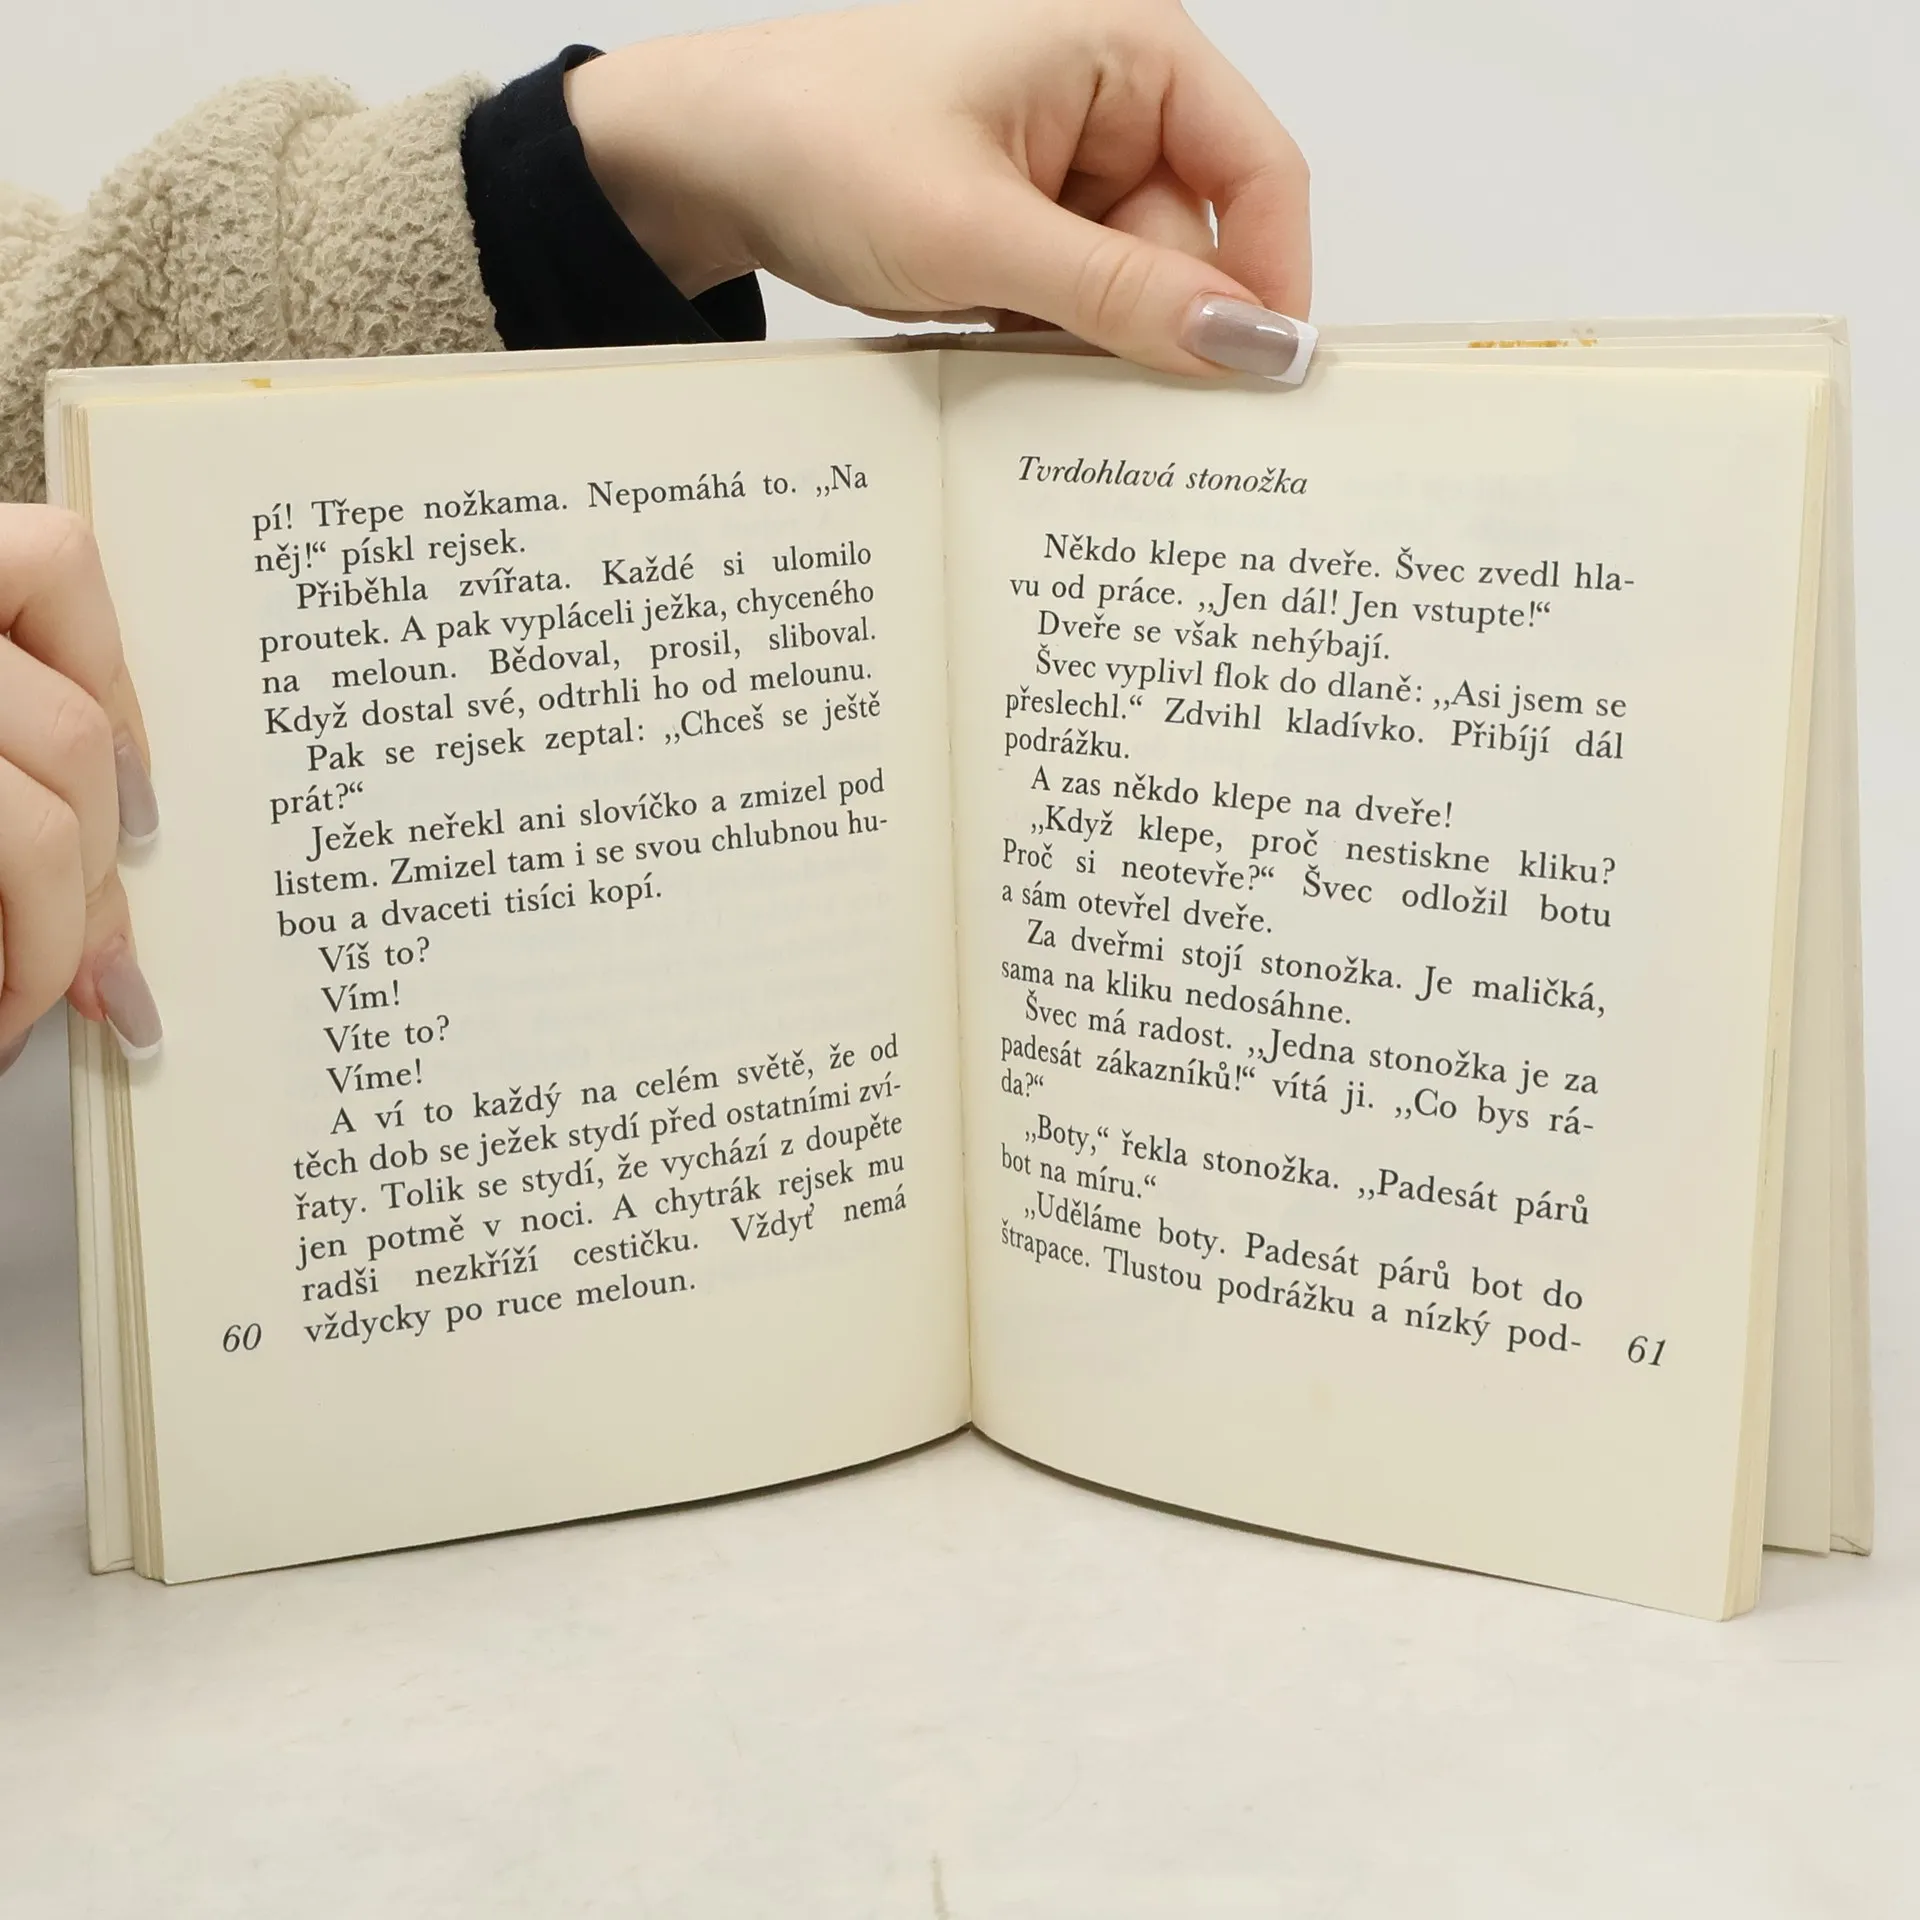 pí! Třepe nožkama. Nepomáhá to. „Na
něj!“ pískl rejsek.
Přiběhla zvířata. Každé si ulomilo
proutek. A pak vypláceli ježka, chyceného
na meloun. Bědoval, prosil, sliboval.
Když dostal své, odtrhli ho od melounu.
Pak se rejsek zeptal: „Chceš se ještě
prát?“
Ježek neřekl ani slovíčko a zmizel pod
listem. Zmizel tam i se svou chlubnou hu-
bou a dvaceti tisíci kopí.
Víš to?
Vím!
Víte to?
Víme!
A ví to každý na celém světě, že od
těch dob se ježek stydí před ostatními zví-
řaty. Tolik se stydí, že vychází z doupěte
jen potmě v noci. A chytrák rejsek mu
radši nezkříží cestičku. Vždyť nemá
vždycky po ruce meloun.
60
Tvrdohlavá stonožka
Někdo klepe na dveře. Švec zvedl hla-
vu od práce. „Jen dál! Jen vstupte!“
Dveře se však nehýbají.
Švec vyplivl flok do dlaně: „Asi jsem se
přeslechl.“ Zdvihl kladívko. Přibíjí dál
podrážku.
A zas někdo klepe na dveře!
„Když klepe, proč nestiskne kliku?
Proč si neotevře?“ Švec odložil botu
a sám otevřel dveře.
Za dveřmi stojí stonožka. Je maličká,
sama na kliku nedosáhne.
Švec má radost. „Jedna stonožka je za
padesát zákazníků!“ vítá ji. „Co bys rá-
da?“
„Boty,“ řekla stonožka. „Padesát párů
bot na míru.“
„Uděláme boty. Padesát párů bot do
štrapace. Tlustou podrážku a nízký pod-
61